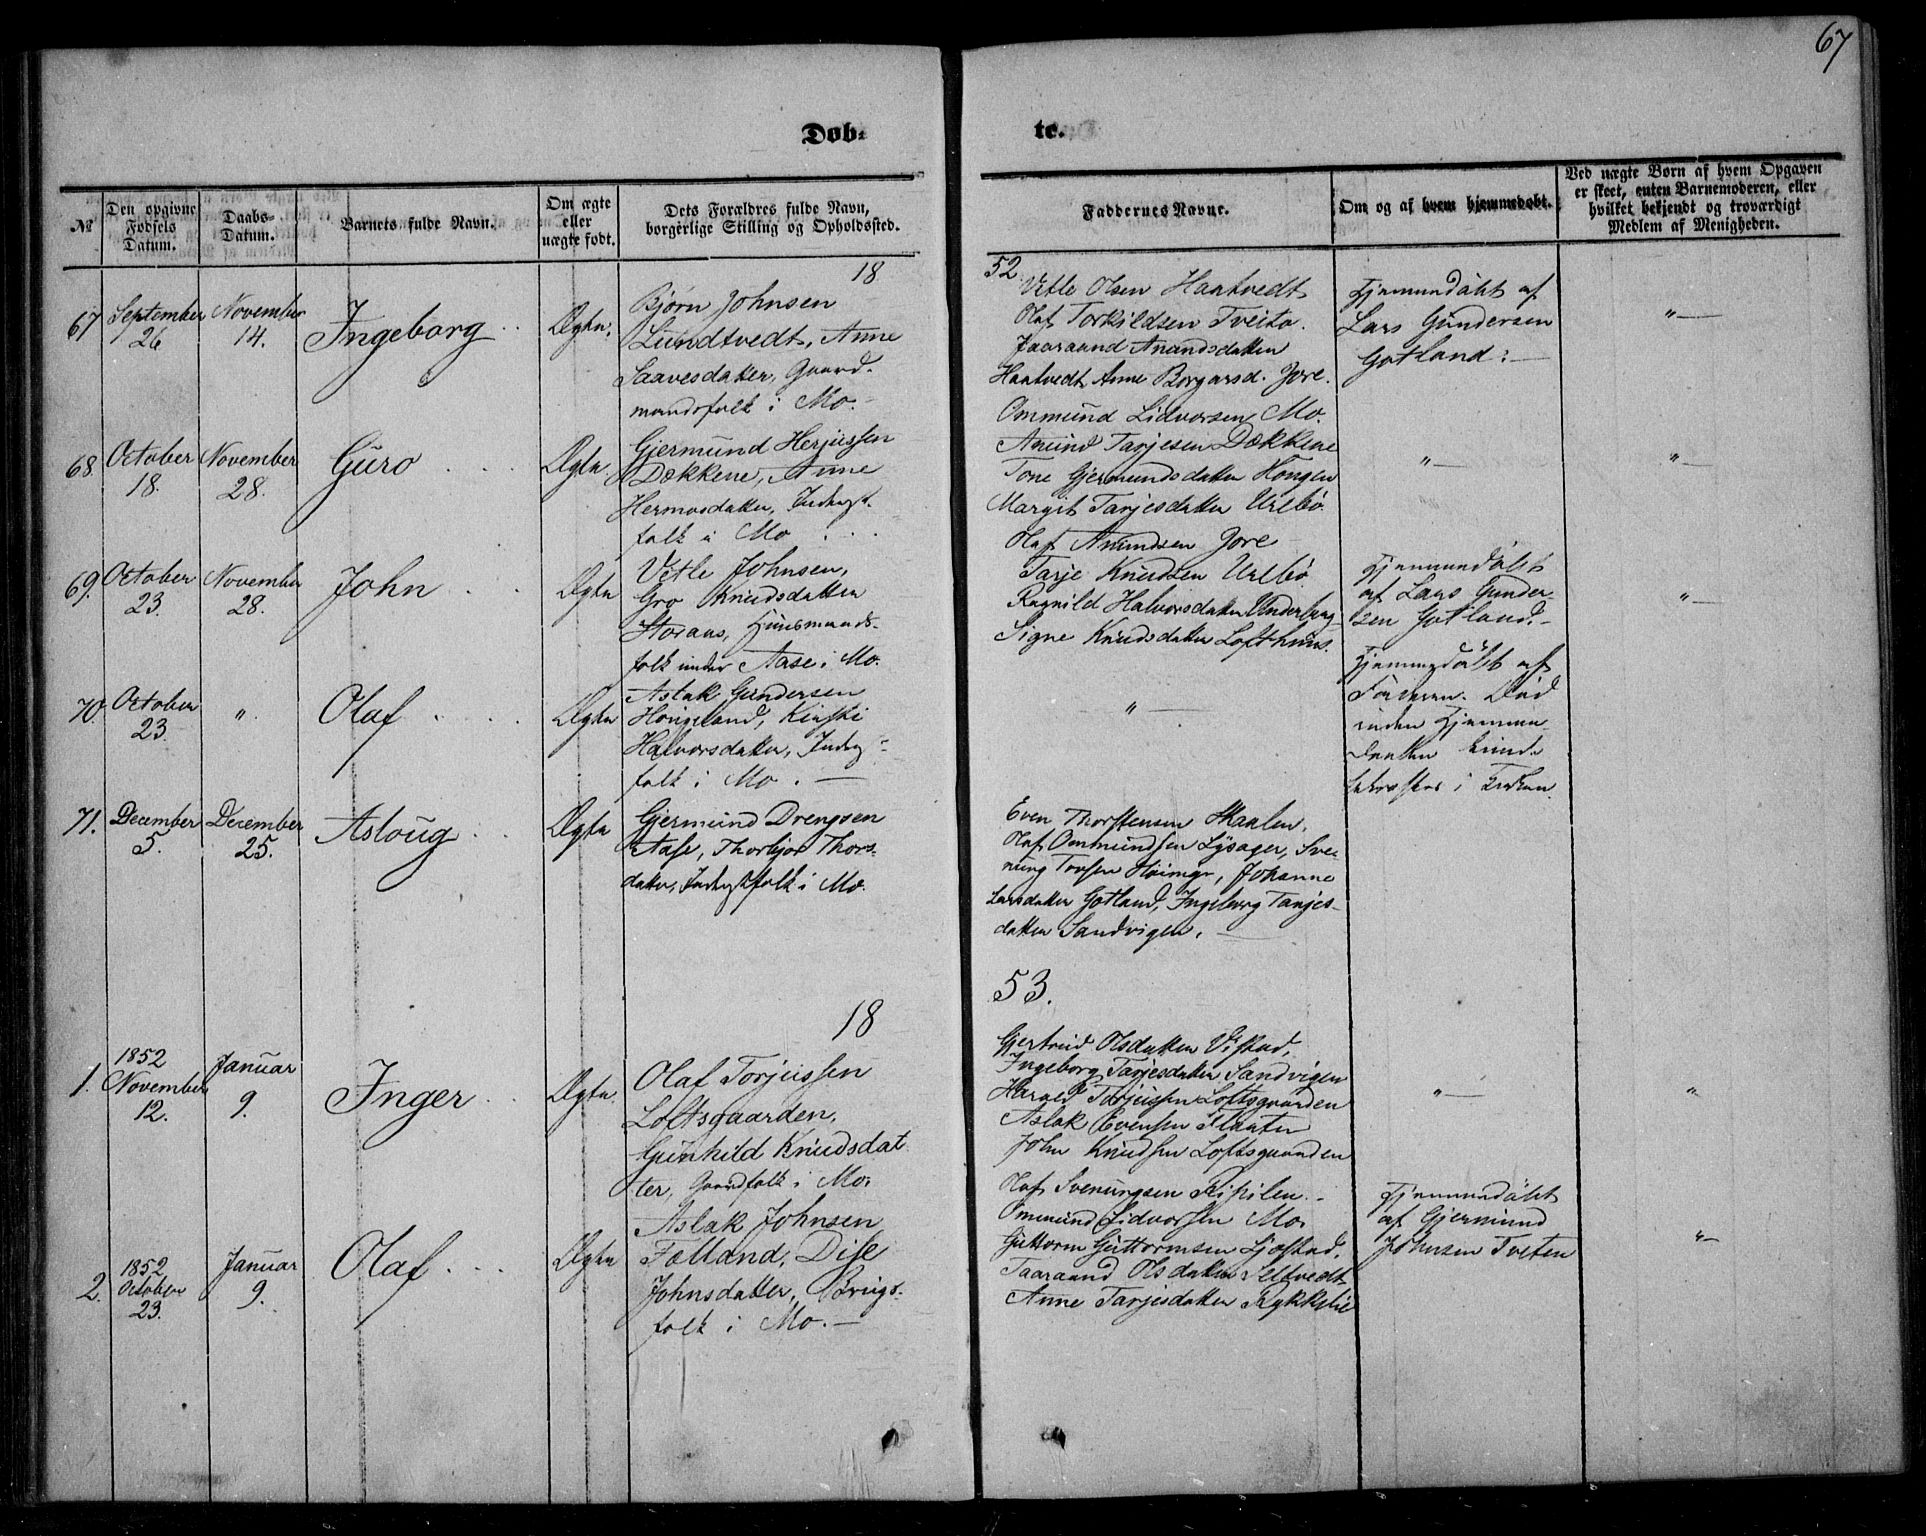 67
Døb-
te.
№
Den opgivne Fødsels Datum.
Daabs-Datum.
Barnets fulde Navn.
Om ægte eller uægte født.
Dets Forældres fulde Navn, borgerlige Stilling og Opholdssted.
Faddernes Navne.
Om og af hvem hjemmedøbt.
Ved uægte Børn af hvem Opgaven er skeet, enten Barnemoderen, eller hvilket bekjendt og troværdigt Medlem af Menigheden.
18
52.
67
September
26
November
14.
Ingeborg
Ægte.
Bjørn Johnsen
Lundtvedt, Anne
Saavesdatter, Gaard-
mandsfolk i Mo.
Vetle Olsen Haatvedt
Olaf Torkildsen Tveito.
Jaaraand Anundsdatter
Haatvedt Anne Borgarsd. Jore.
Ommund Lidvorsen Mo.
Hjemmedøbt af
Lars Gundersen
Gotland.
"
68.
October
18.
November
28.
Guro
Ægte
Gjermund Herjussen
Dækkene, Anne
Hermosdatter, Inderst-
folk i Mo
Anund Tarjesen Dækkene
Tone Gjermundsdatter Hongen
Margit Tarjesdatter Urlbø.
Olaf Anundsen Jore
"
"
69.
October
23.
November
28.
John
Ægte
Vetle Johnsen,
Gro Knudsdatter
Storaas, Huusmands-
folk under Aase i Mo.
Tarje Knudsen Urlbø
Ragnild Halvorsdatter Underberg
Signe Knudsdatter Lofthuus.
Hjemmedøbt
af Lars Gunder-
sen Gotland.
"
70.
October
23.
"
Olaf
Ægte
Aslak Gundersen
Haugeland, Kirsti
Halvorsdatter, Inderst-
folk i Mo.
"
Hjemmedøbt af
Faderen. Død
inden Hjemme-
daaben kunde
bekræftes i Kirken.
71.
December
5.
December
25.
Asloug
Ægte
Gjermund Drengsen
Aase, Thorbjør Thors-
datter, Inderstfolk i Mo.
Even Thorstensen Skaalen,
Olaf Ommundsen Lysager, Sve-
nung Torsen Høimyr, Johanne
Larsdatter Gotland, Ingeborg Tarjes-
datter Sandvigen.
18
53.
1.
1852
November
12.
Januar
9.
Inger
Ægte.
Olaf Torjussen
Loftsgaarden,
Gunhild Knudsdat
ter, Gaardfolk i Mo.
Gjertrud Olsdatter Vistad,
Ingeborg Tarjesdatter Sandvigen
Harald Torjussen Loftsgaarden
Aslak Evensen Slaaten
John Knudsen Loftsgaarden
"
"
2.
1852
October
23.
Januar
9.
Olaf
Ægte
Aslak Johnsen
Fælland, Dise
Johnsdatter, Brugs-
folk i Mo.
Olaf Svenungsen
Ommund Lidvorsen Mo.
Guttorm Guttormsen
Taaraand Olsdatter
Anne Tarjesdatter Rykkelie
Hjemmedøbt
af Gjermund
Johnsen Tveten
"